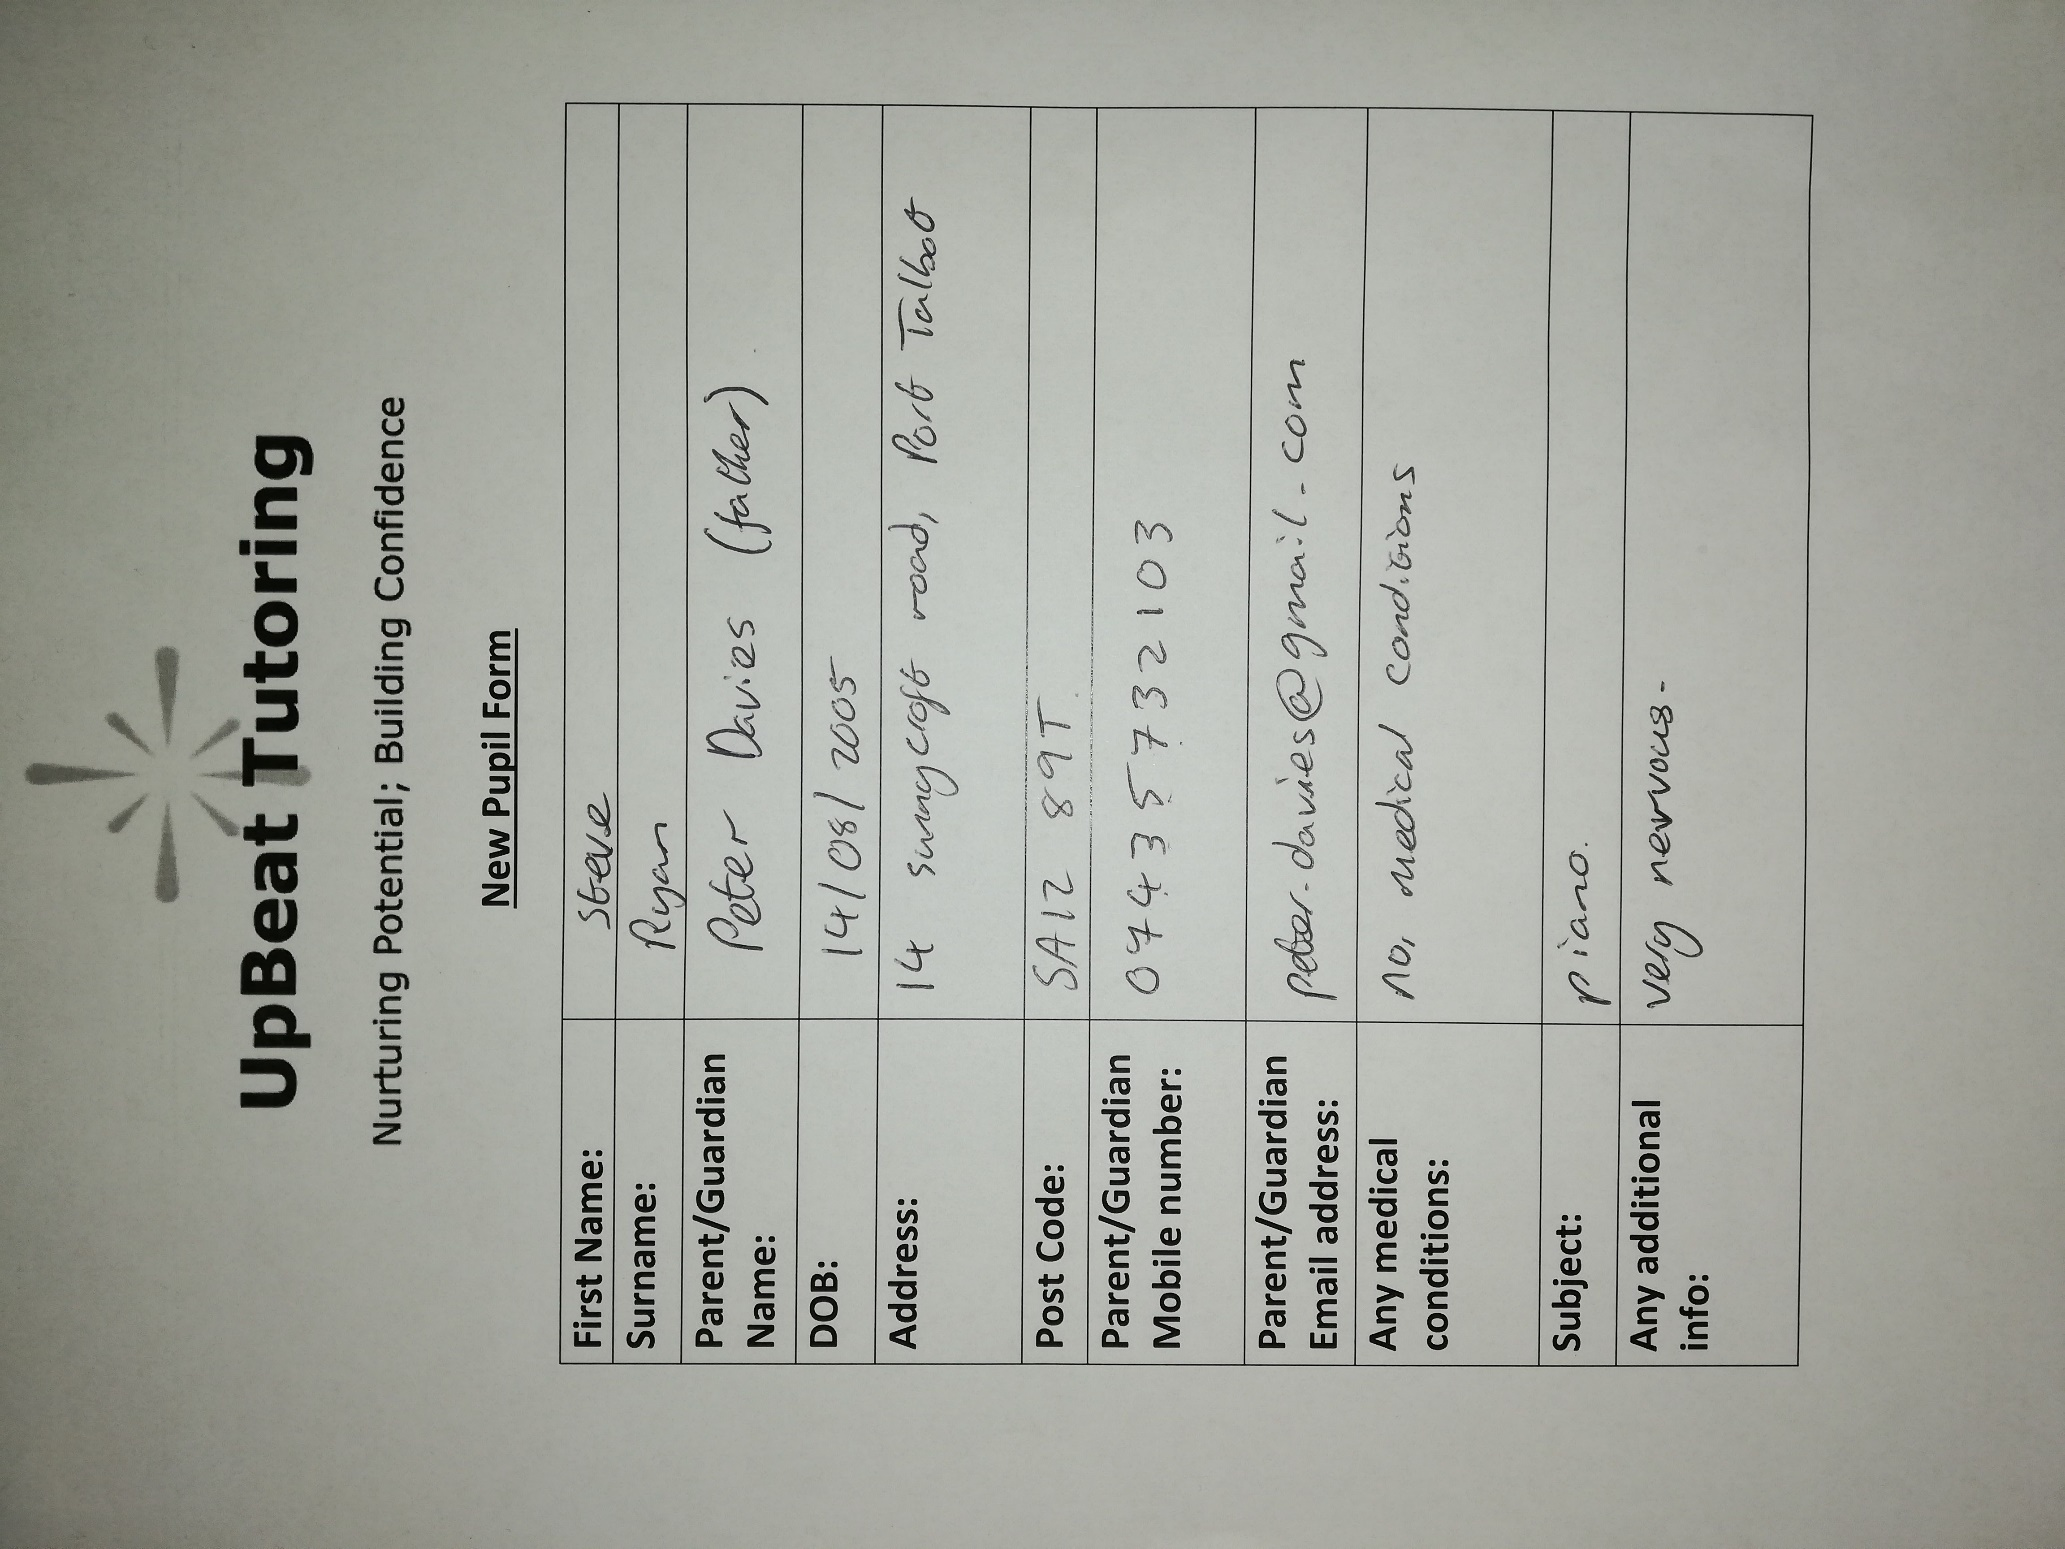 UpBeat Tutoring
Nurturing Potential; Building Confidence
New Pupil Form
First Name: Steve
Surname: Ryan
Parent/Guardian Name: Peter Davies (father)
DOB: 14/08/2005
Address: 14 sunnycroft road, Port Talbot
Post Code: SA12 89T
Parent/Guardian Mobile number: 07435732103
Parent/Guardian Email address: peter.davies@gmail.com
Any medical conditions: no, medical conditions
Subject: piano.
Any additional info: very nervous.